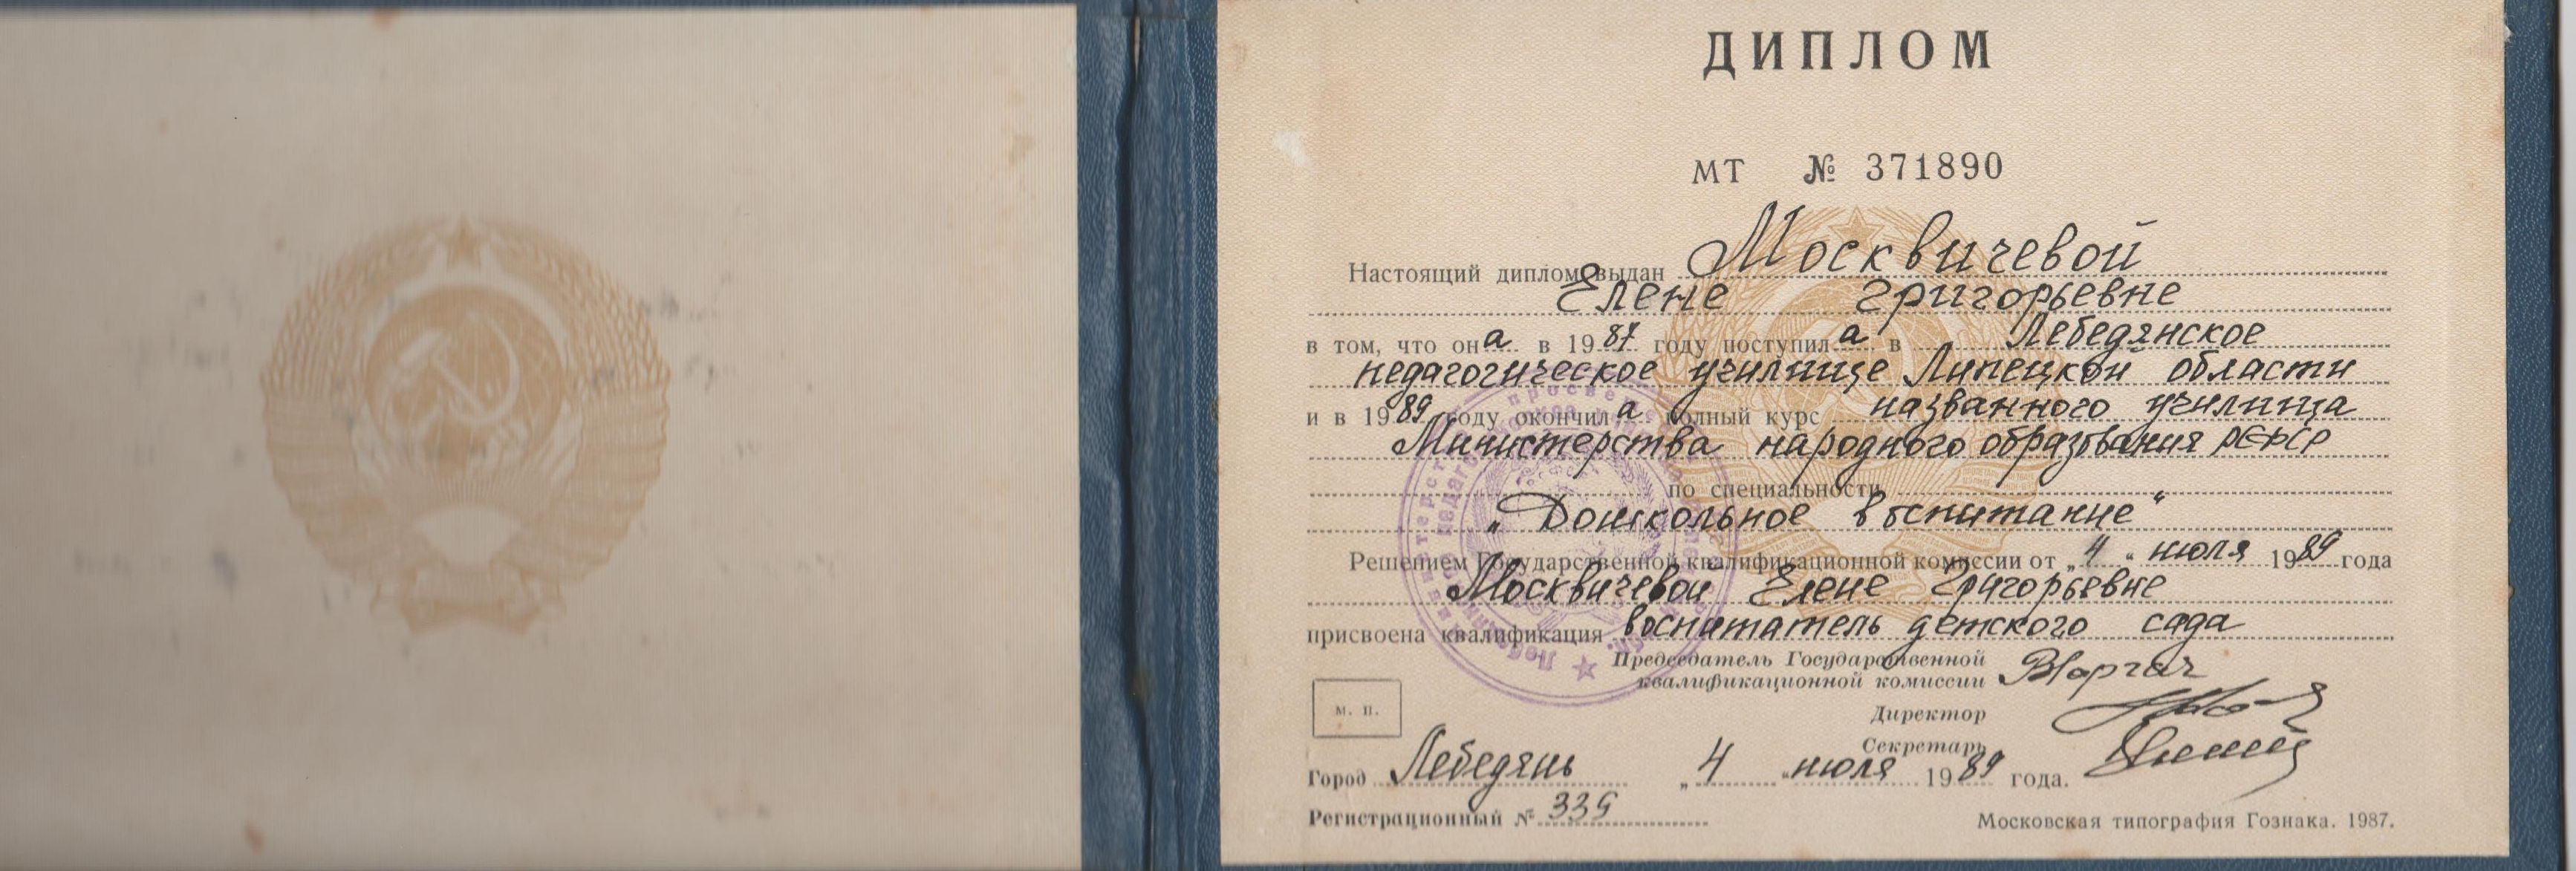 ДИПЛОМ
МТ № 371890
Настоящий диплом выдан Москвичевой
Елене Григорьевне
в том, что она в 1987 году поступила в Лебедянское
педагогическое училище Липецкой области
и в 1989 году окончила полный курс названного училища
Министерства народного образования РСФСР
по специальности
„Дошкольное воспитание“
Решением Государственной квалификационной комиссии от „4“ июля 1989 года
Москвичевой Елене Григорьевне
присвоена квалификация воспитатель детского сада
Председатель Государственной
квалификационной комиссии
м. п.
Директор
Секретарь
Город Лебедянь „4“ июля 1989 года.
Регистрационный № 339
Московская типография Гознака. 1987.